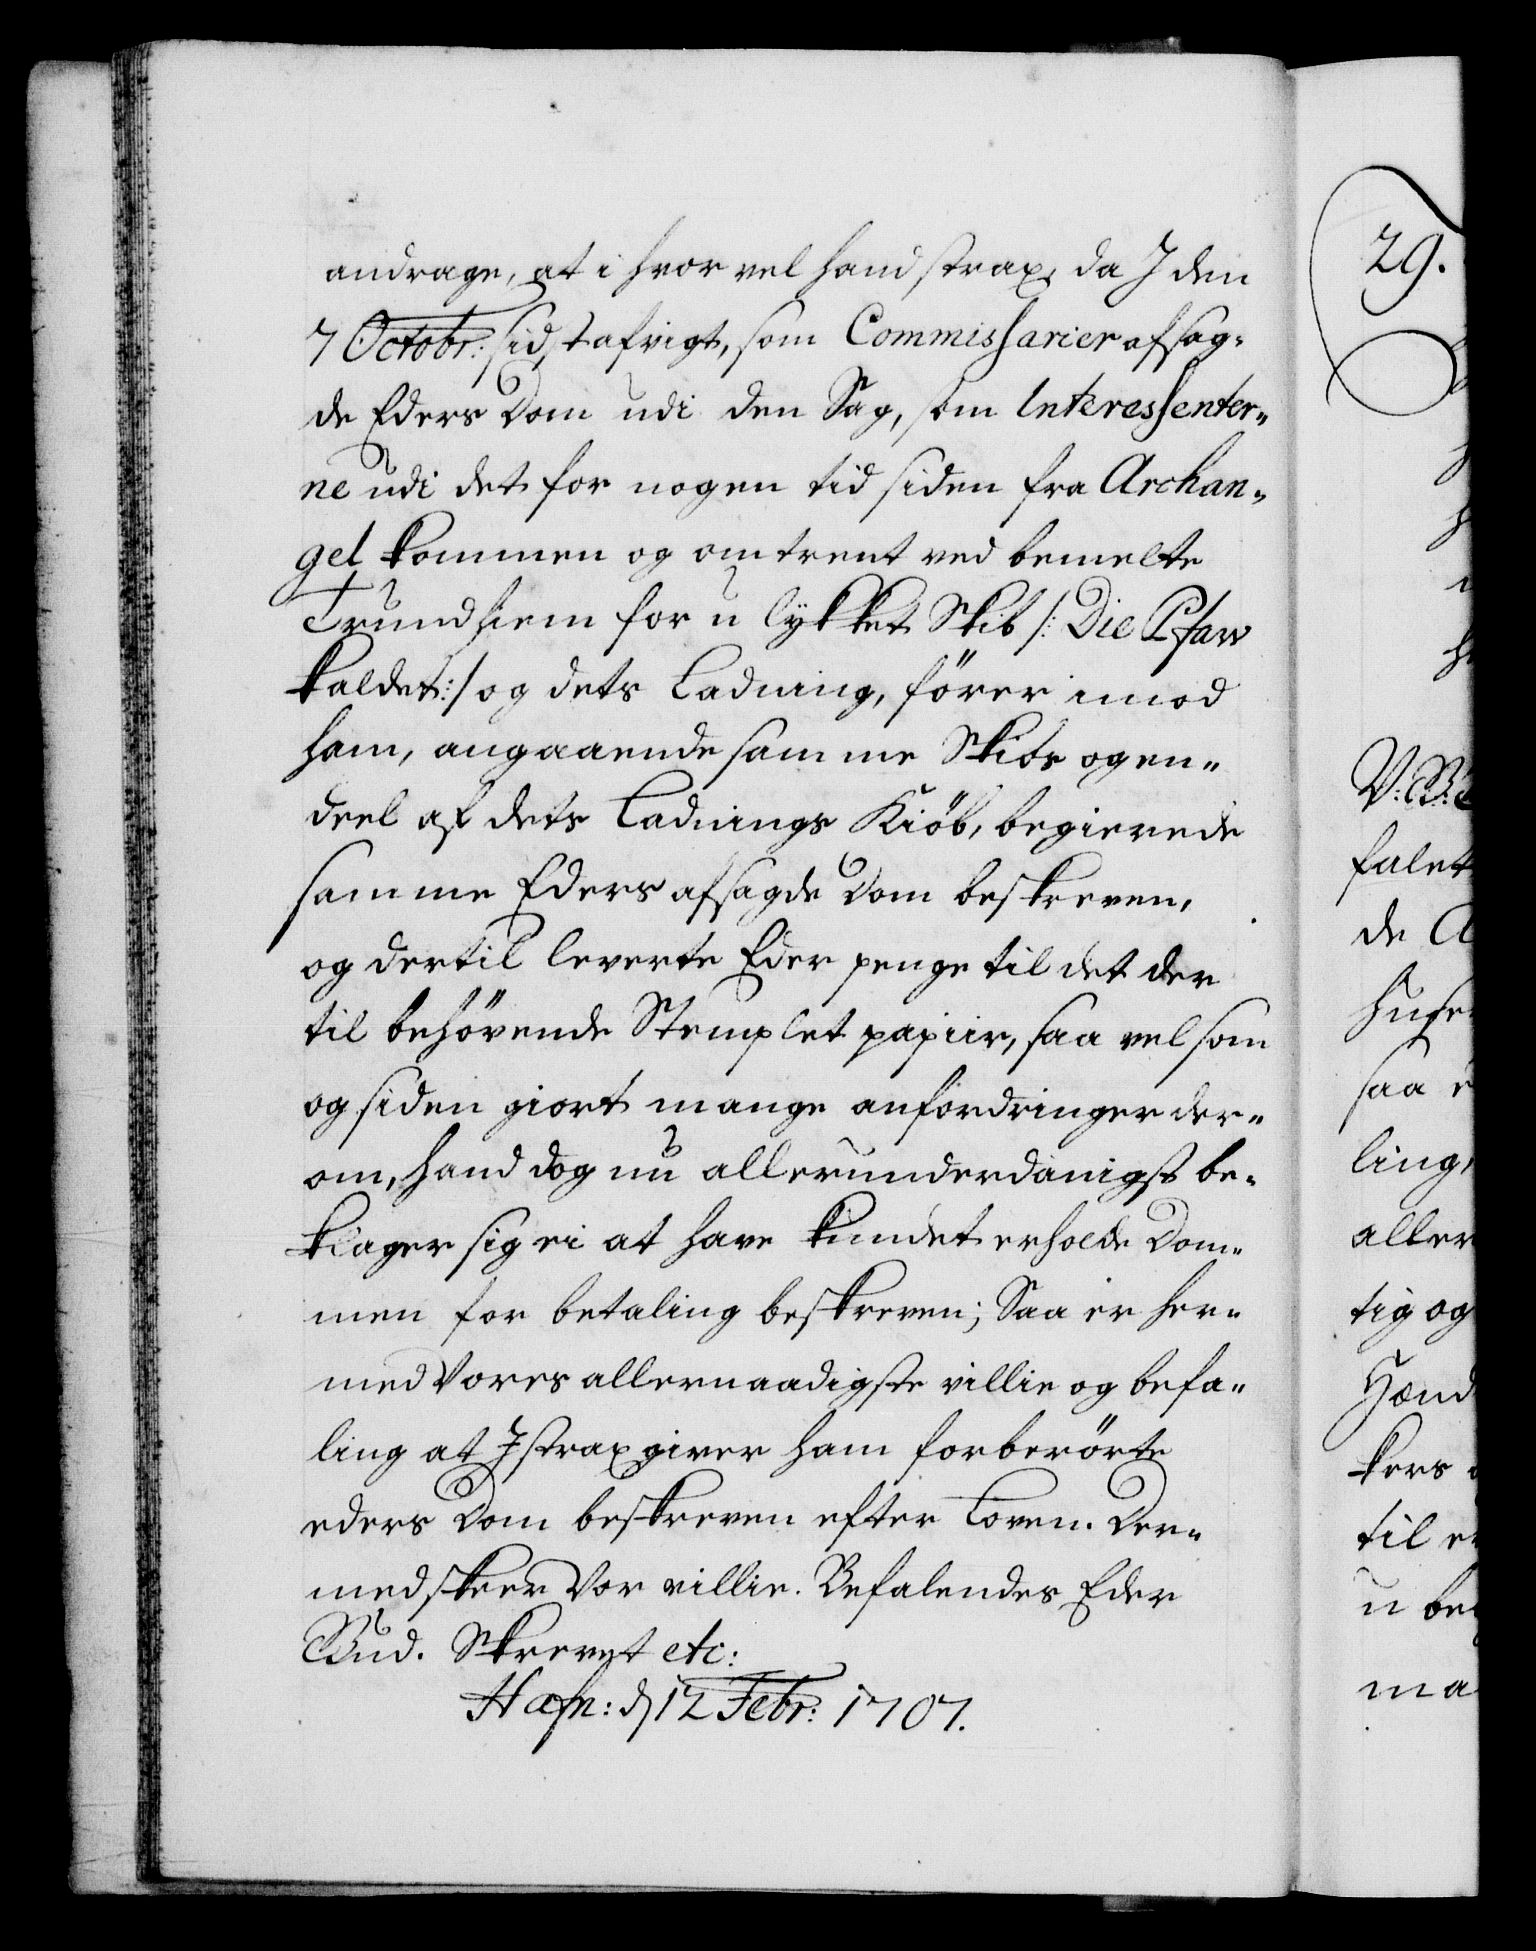 andrage, at i hvor vel hand strax, da I den
7 Octobr: sidst afvigt, som Commissarier afsag-
de Eders Dom udi den Sag, som Interessenter-
ne udi det for nogen tid siden fra Archan-
gel kommen og omtrent ved bemelte
Trundhiem for u lykket Skib /: Die Pfaw
kaldet :/ og dets Ladning, fører imod
ham, angaaende samme Skibs og en-
deel af dets Ladnings Kiöb, begierede
samme Eders afsagde Dom beskreven,
og dertil leverte Eder penge til det der
til behövende Stemplet papiir, saa vel som
og siden giort mange anfordringer der-
om, hand dog nu allerunderdanigst be-
klager sig ei at have kundet erholde Dom-
men for betaling beskreven; Saa er her-
med Vores allernaadigste villie og befa-
ling at I strax giver ham forberörte
eders Dom beskreven efter Loven. Der-
med skeer Vor villie. Befalendes Eder
Gud. Skrevet etc:
Hafn: d 12 Febr: 1707.
29.
V: G:
falet
de A
huser
saa
ling,
aller
tig og
Hænd
kers
til
u be
ma